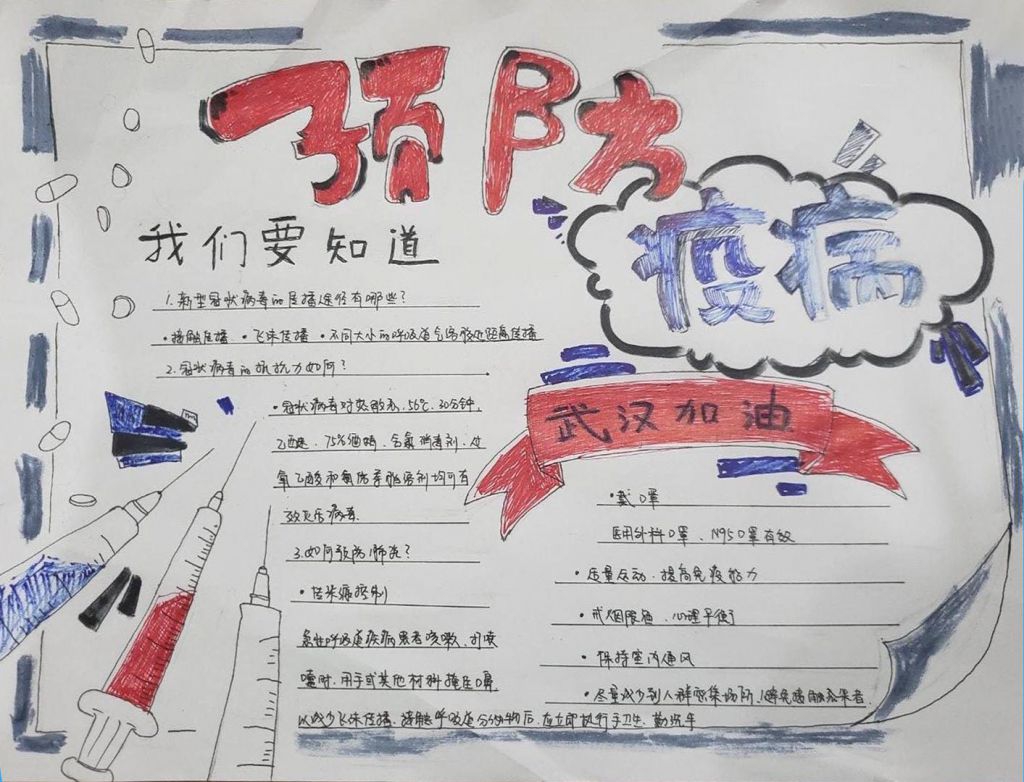 预防
疫病
我们要知道
1.新型冠状病毒的传播途径有哪些?
·接触传播 ·飞沫传播 ·不同大小的呼吸道气溶胶近距离传播
2.冠状病毒的抵抗力如何?
·冠状病毒对热敏感,56℃、30分钟、
乙醚、75%酒精、含氯消毒剂、过
氧乙酸和氯仿等脂溶剂均可有
效灭活病毒.
3.如何预防肺炎?
·
急性呼吸道疾病患者咳嗽、打喷
嚏时、用手或其他材料掩住口鼻
以减少飞沫传播、接触呼吸道分泌物后,应立即执行手卫生、勤洗手
武汉加油
·戴口罩
医用外科口罩、N95口罩有效
·适量运动、提高免疫能力
·戒烟限酒、心理平衡
·保持室内通风
·尽量减少到人群密集场所、避免接触